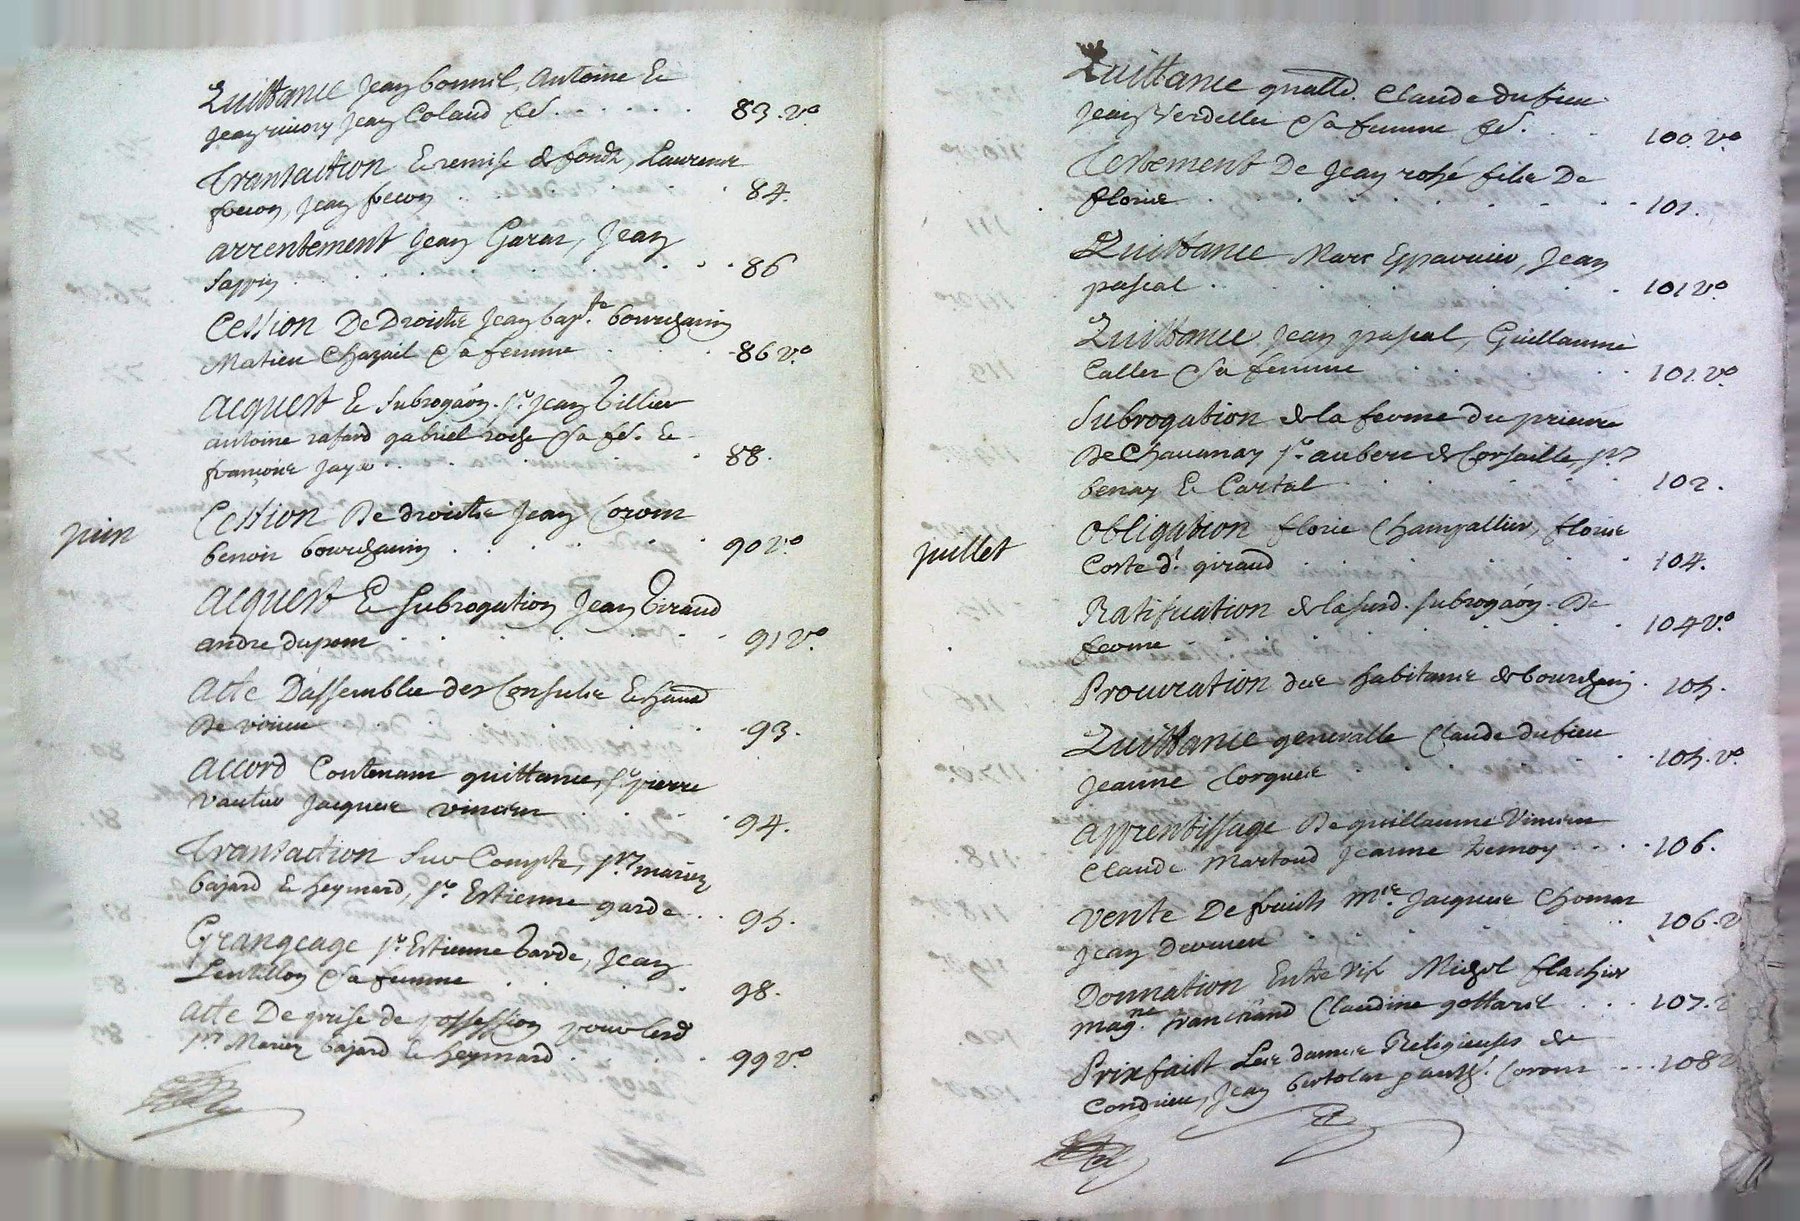 Quittance Jean bonnel, Antoine &
Jean Jean Coland &c. 83. vº
Transaction & remise de fonds, Laurence
Jean 84.
arrentement Jean Garas, Jean
Sappin 86
Cession De Droictz Jean bapte. bourchanin
Matieu Chazail & sa femme 86 vº
acquest & subrogaôn. sr. Jean Tillier
antoine rafard gabriel & sa fe. &
françoise Jaye 88.
juin
Cession De droictz Jean Coront
benoit bourchanin 90 vº
acquest & subrogation Jean Girand
andre dupont 91 vº
acte D'assemblee des Consulz &
De 93.
accord Contenant quittance, sr. pierre
Jacques vincent 94.
Transaction sur Compte, mariez
bajard & heymard, sr. Estienne garde 95.
Grangeage sr. Estienne Garde, Jean
Lentillon & sa femme 98.
acte De prise de possession pour lesd
Mariez bajard & heymard 99 vº
Quittance gnalle. Claude dubieu
Jean Verdellet & sa femme &c. 100. vº
Testement De Jean rozé filz De
florie 101.
Quittance Marc Epparvier, Jean
pascal 101 vº
Quittance Jean pascal, Guillaume
Caller & sa femme 101. vº
Subrogation de la ferme du prieuré
De Chavanay sr. aubert de Corsaille,
benay & Cartal 102.
juillet
Obligation florie Champallier, florie
Coste dt. giraud 104.
Ratification de la susd. subrogaôn. De
ferme 104 vº
Procuration des habitants de bourchanin 105.
Quittance generalle Claude dubieu
Jeanne Corqueis 105. vº
apprentissage De guillaume Vincent
Claude Martoud Jeanne 106.
Vente De fruits Me. Jacques Chomat
Jean 106. v
Donnation Entre vifz Michel flachier
magne. Claudine gottaril 107.
Prixfaict Les dames Religieuses de
Condrieu, Jean bertolat Coront 108